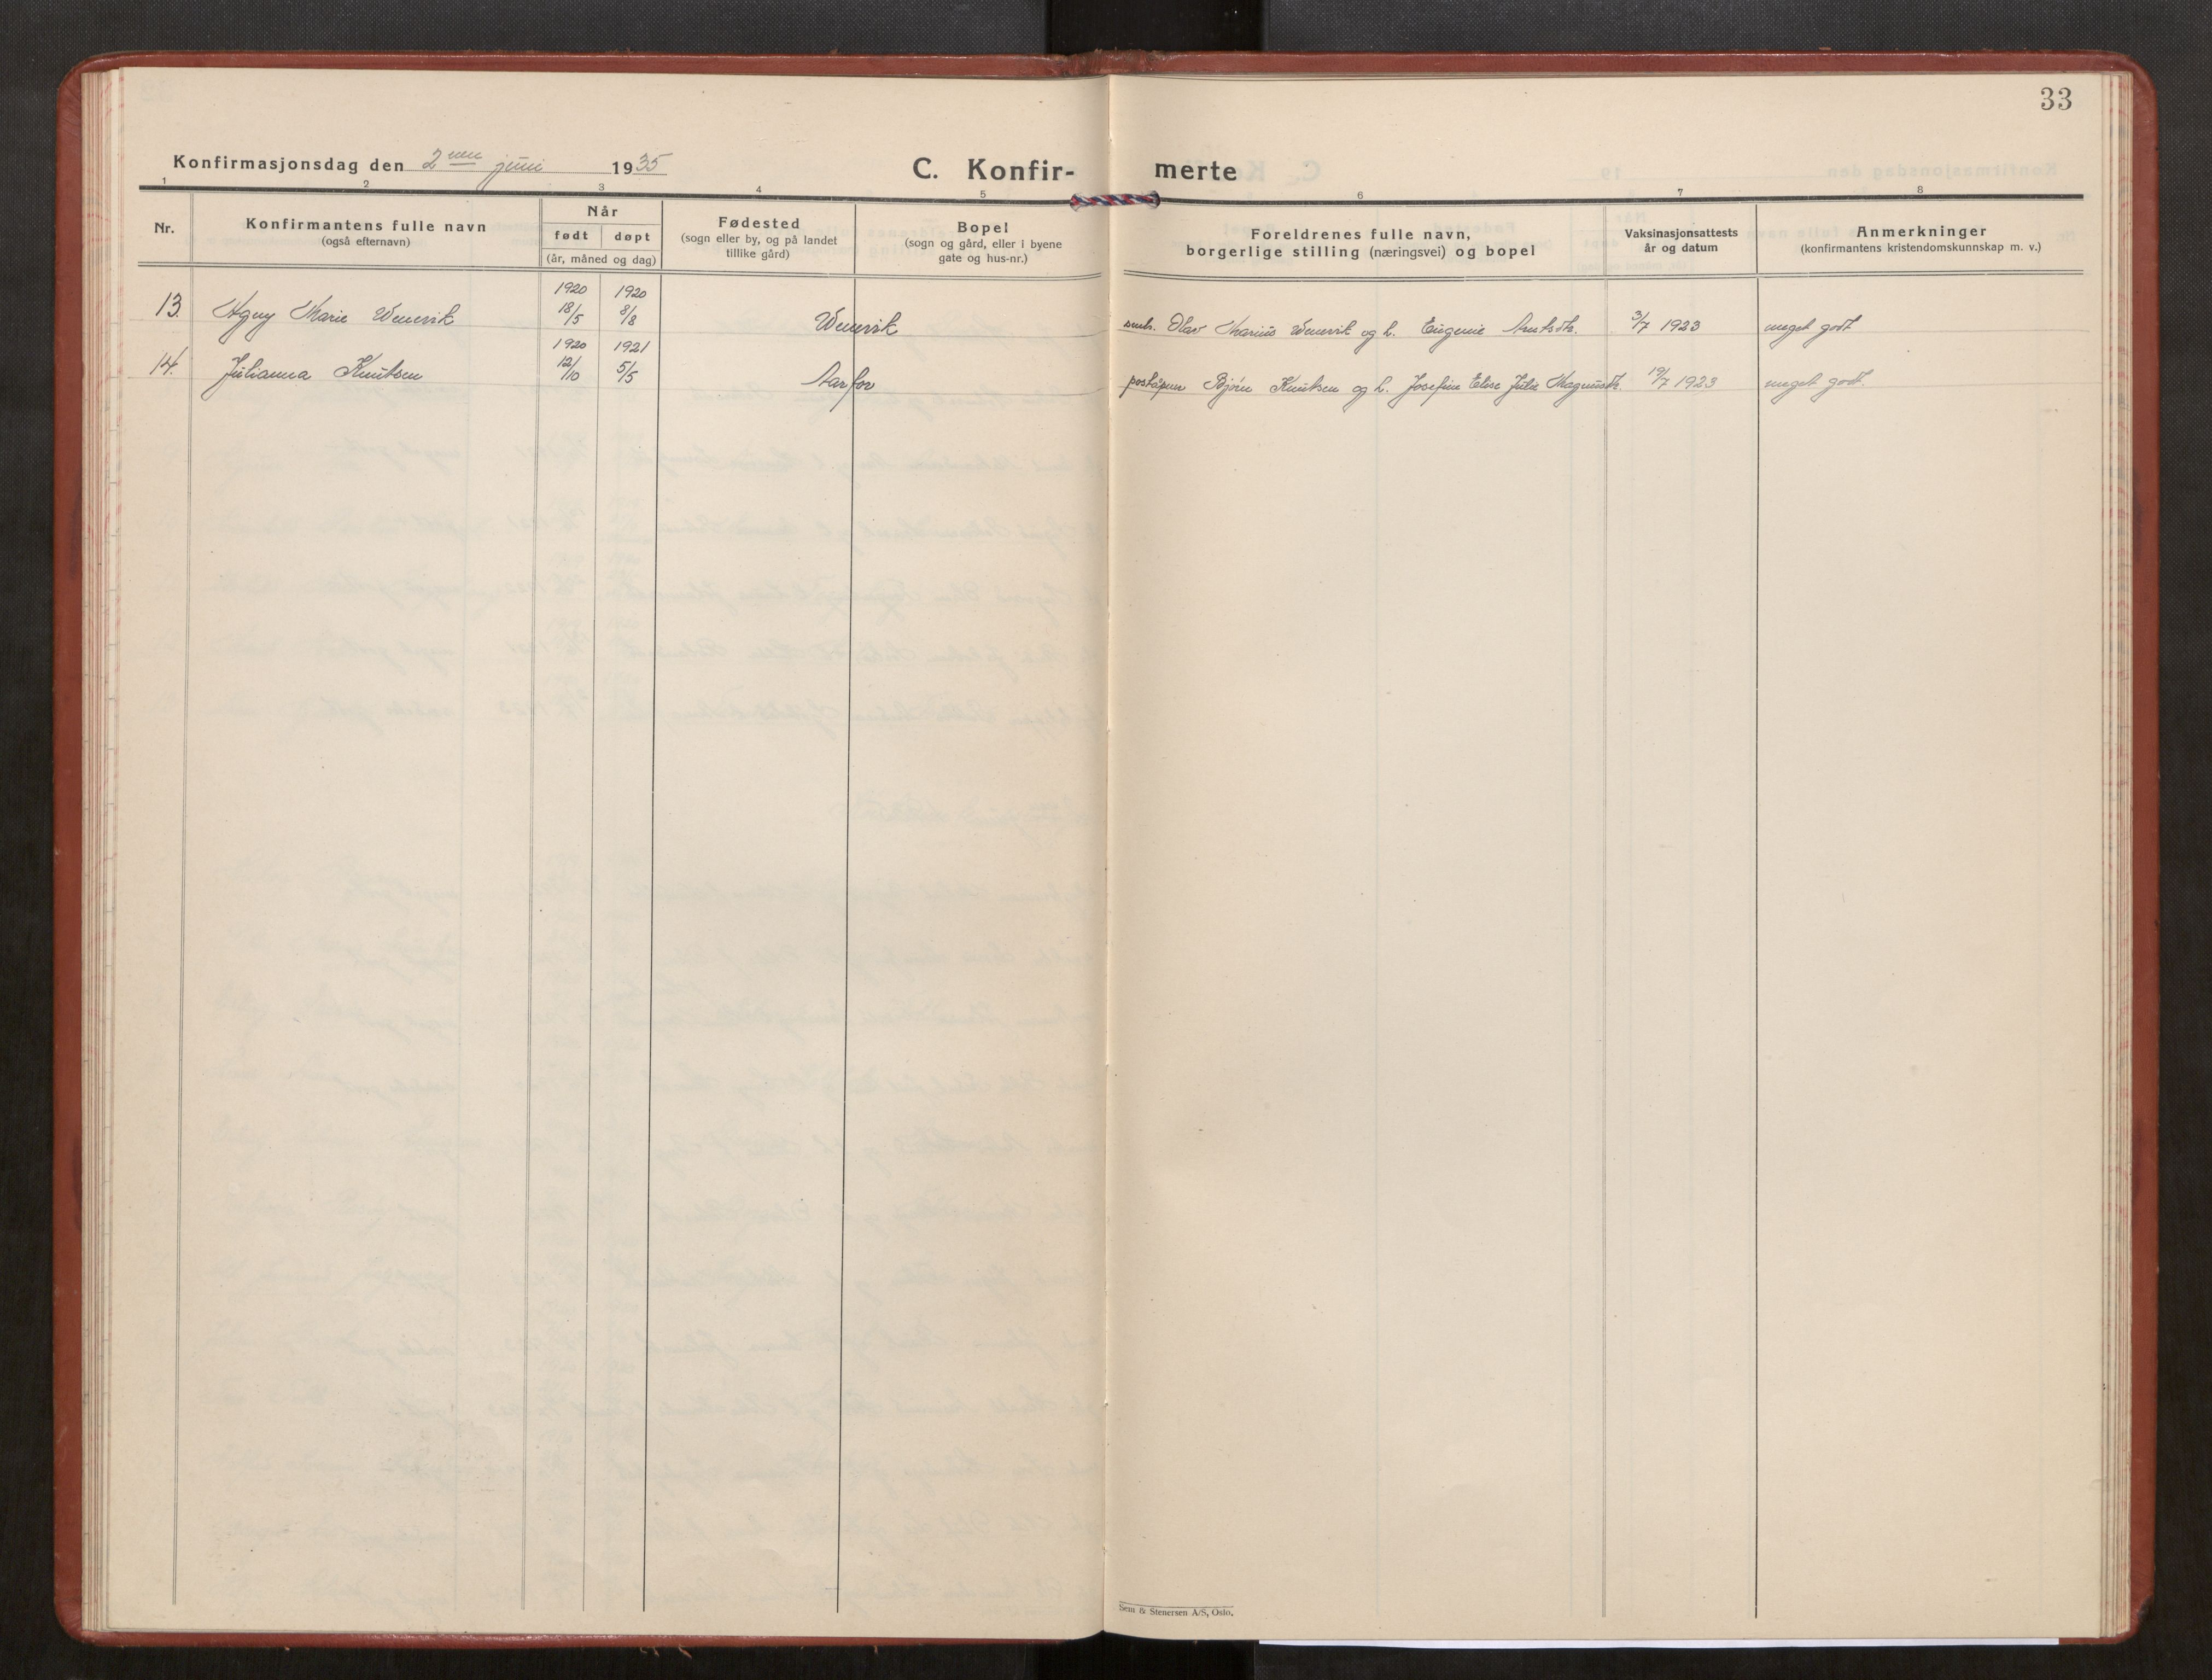 33
Konfirmasjonsdag den 2nen juni 1935
C. Konfir- merte
1 2 3 4 5 6 7 8
Nr.
Konfirmantens fulle navn
(også efternavn)
Når
født døpt
(år, måned og dag)
Fødested
(sogn eller by, og på landet
tillike gård)
Bopel
(sogn og gård, eller i byene
gate og hus-nr.)
Foreldrenes fulle navn,
borgerlige stilling (næringsvei) og bopel
Vaksinasjonsattests
år og datum
Anmerkninger
(konfirmantens kristendomskunnskap m. v.)
1920 1920
13. Agny Marie Wennvik 18/5 8/8 Wennvik Olav Marius Wennvik og h. Eugenie 3/7 1923 meget godt
1920 1921
14. Julianna Knutsen 12/10 5/5 Aarfor poståpner Bjørn Knutsen og h. Josefine Elise Julie Magnusdt. 19/7 1923 meget godt.
Sem & Stenersen A/S, Oslo.